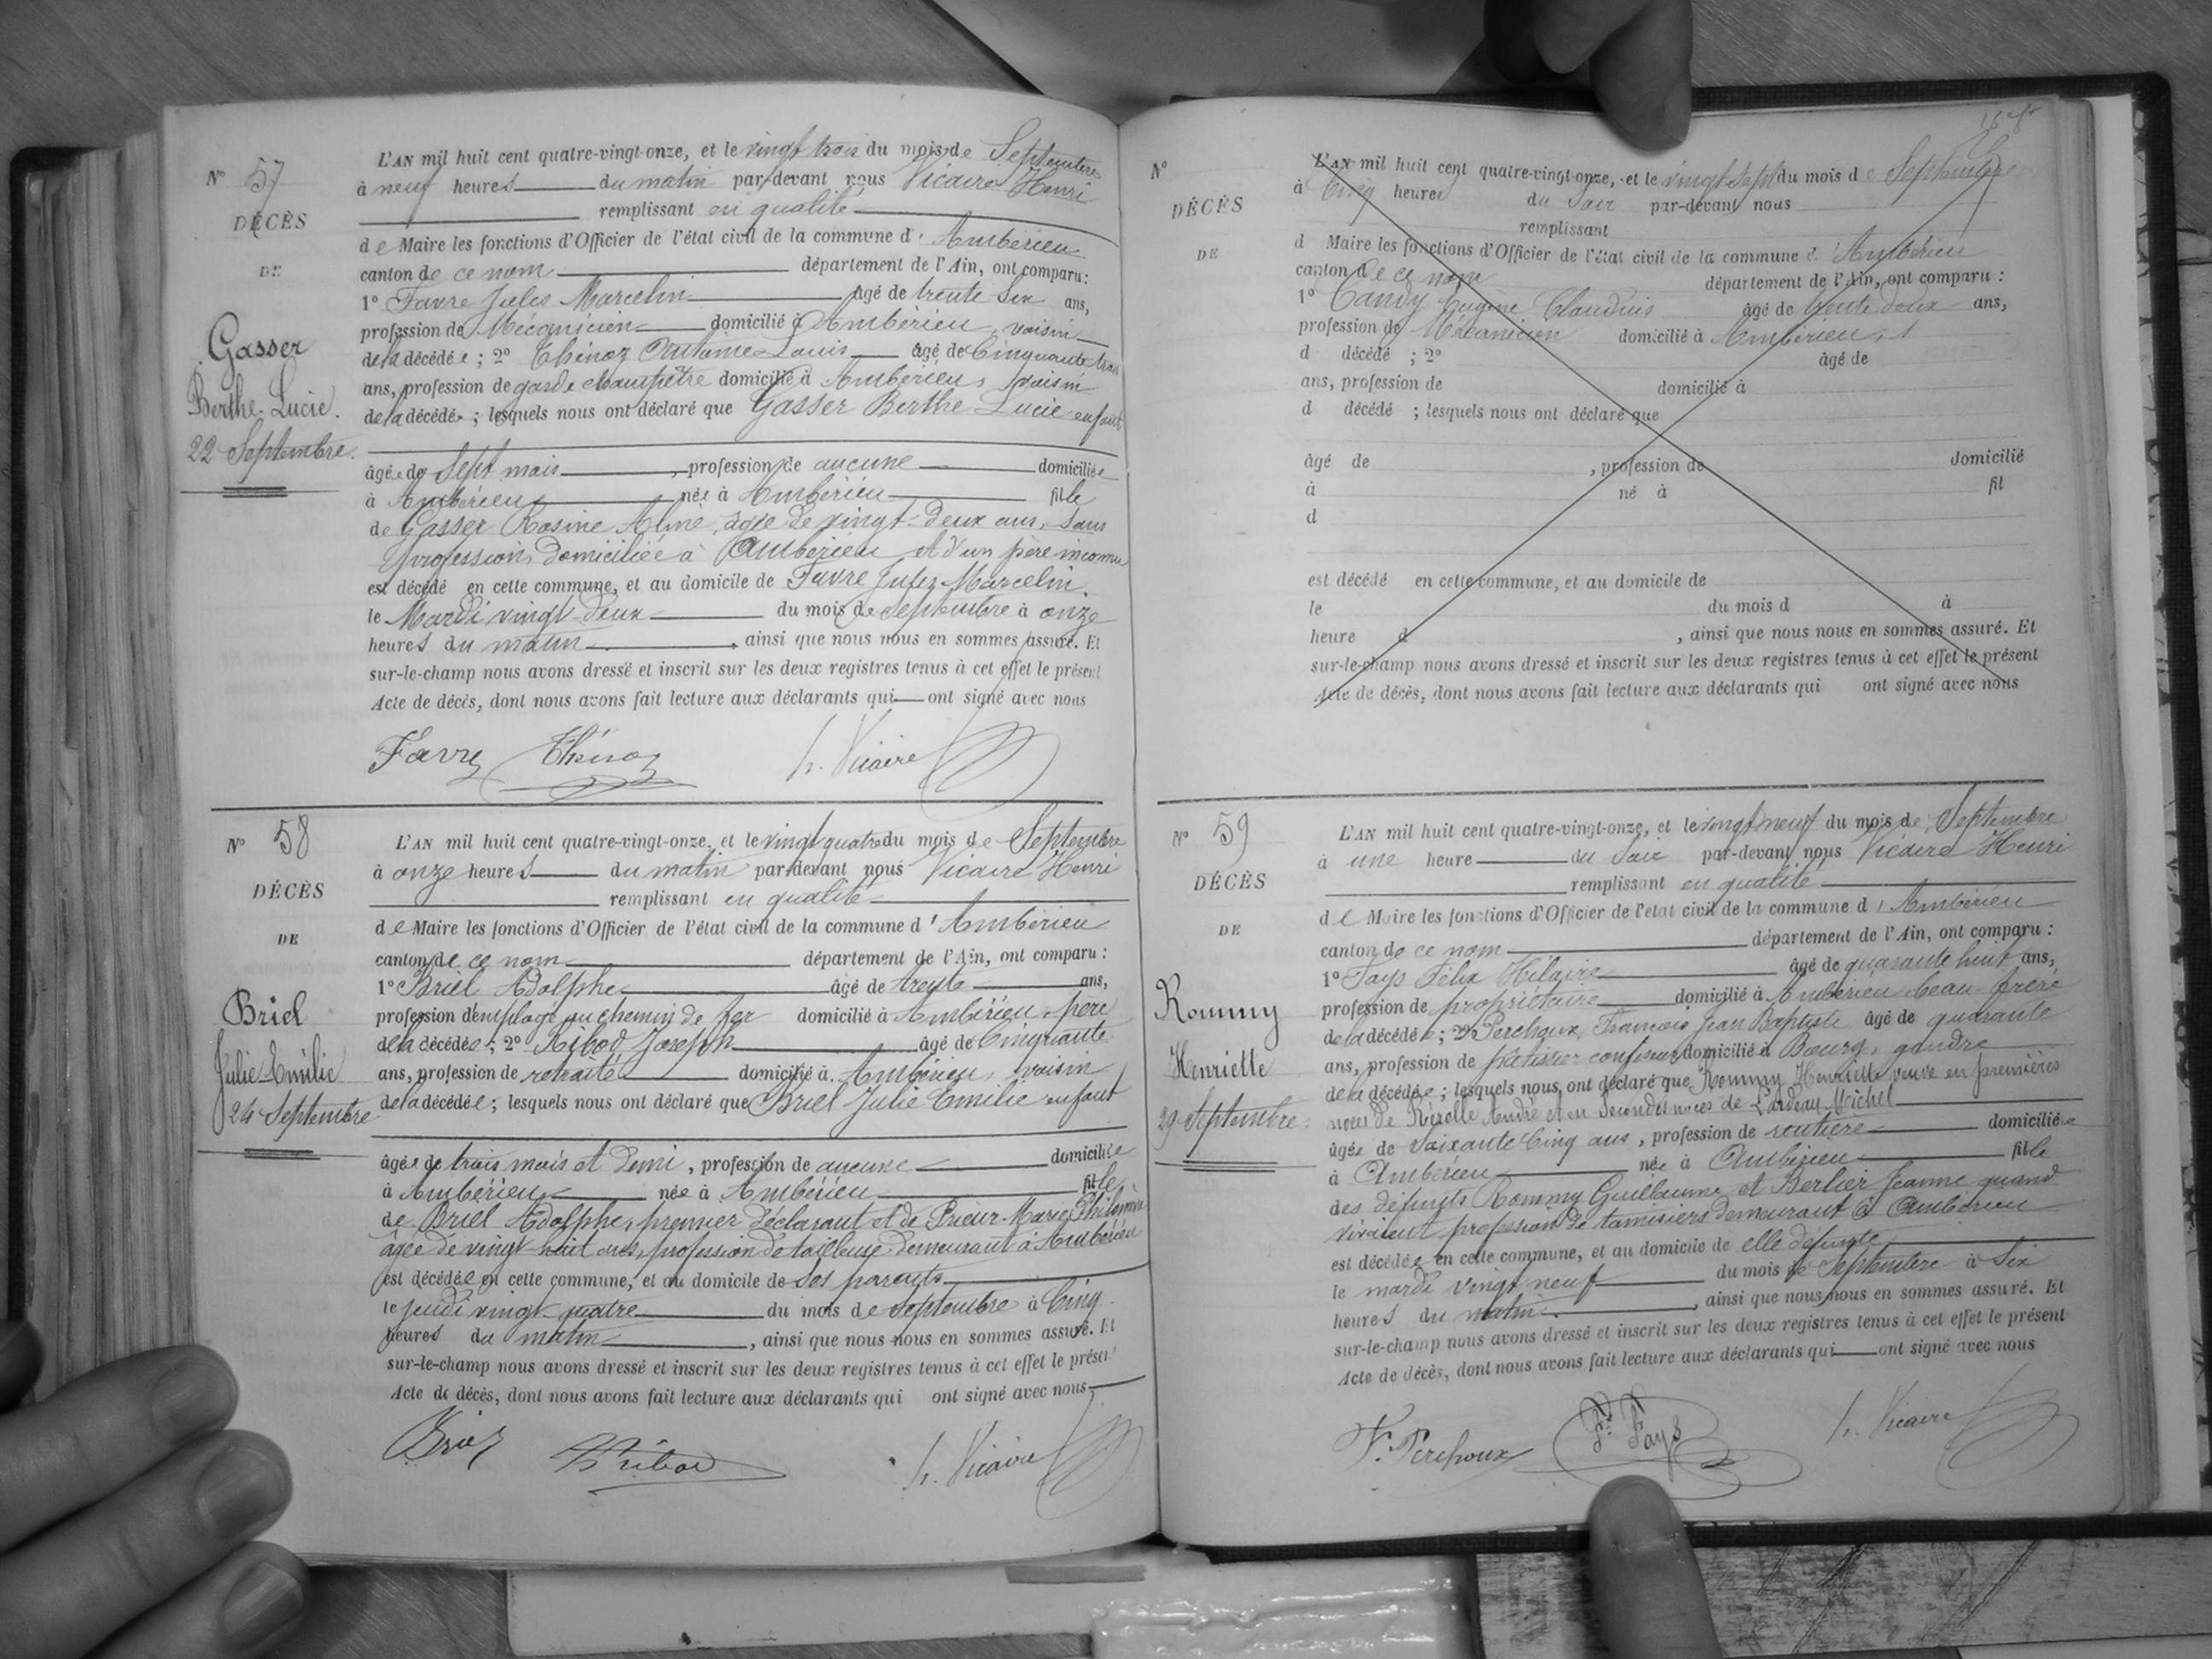 N° 57
DÉCÈS
DE
Gasser
Berthe Lucie.
22 Septembre.
L'AN mil huit cent quatre-vingt-onze, et le vingt trois du mois de Septembre
à neuf heures du matin par-devant nous Vicaire Henri
remplissant en qualité
de Maire les fonctions d'Officier de l'état civil de la commune d'Ambérieu
canton de ce nom département de l'Ain, ont comparu :
1° Favre Jules Marcelin âgé de trente six ans,
profession de Mécanicien domicilié à Ambérieu, voisin
de la décédée ; 2° Thénoz Antoine Louis âgé de Cinquante trois
ans, profession de garde champêtre domicilié à Ambérieu, voisin
de la décédée ; lesquels nous ont déclaré que Gasser Berthe Lucie enfant
âgée de Sept mois, profession de aucune domiciliée
à Ambérieu née à Ambérieu fille
de Gasser Rosine Aline, âgée de vingt-deux ans, sans
profession, domiciliée à Ambérieu et d'un père inconnu
est décédé en cette commune, et au domicile de Favre Jules Marcelin.
le Mardi vingt deux du mois de Septembre à onze
heures du matin, ainsi que nous nous en sommes assuré. Et
sur-le-champ nous avons dressé et inscrit sur les deux registres tenus à cet effet le présent
Acte de décès, dont nous avons fait lecture aux déclarants qui ont signé avec nous
Favre Thénoz h. Vicaire
N° 58
DÉCÈS
DE
Briel
Julie Emilie
24 Septembre
L'AN mil huit cent quatre-vingt-onze, et le vingt quatre du mois de Septembre
à onze heures du matin par-devant nous Vicaire Henri
remplissant en qualité
de Maire les fonctions d'Officier de l'état civil de la commune d'Ambérieu
canton de ce nom département de l'Ain, ont comparu :
1° Briel Adolphe âgé de trente ans,
profession d'employé au chemin de fer domicilié à Ambérieu, père
de la décédée ; 2° Ribod Joseph âgé de Cinquante
ans, profession de retraité domicilié à Ambérieu, voisin
de la décédée ; lesquels nous ont déclaré que Briel Julie Emilie enfant
âgée de trois mois et demi, profession de aucune domiciliée
à Ambérieu née à Ambérieu fille
de Briel Adolphe, premier déclarant et de Prieur Marie Philomène
âgée de vingt-huit ans, profession de tailleuse demeurant à Ambérieu
est décédée en cette commune, et au domicile de ses parents
le jeudi vingt-quatre du mois de Septembre à Cinq
heures du matin, ainsi que nous nous en sommes assuré. Et
sur-le-champ nous avons dressé et inscrit sur les deux registres tenus à cet effet le présent
Acte de décès, dont nous avons fait lecture aux déclarants qui ont signé avec nous
Briel Ribod h. Vicaire
N°
DÉCÈS
DE
L'AN mil huit cent quatre-vingt-onze, et le vingt-sept du mois de Septembre
à Cinq heures du soir par-devant nous
remplissant
d Maire les fonctions d'Officier de l'état civil de la commune d'Ambérieu
canton de ce nom département de l'Ain, ont comparu :
1° Candy Eugène Claudius âgé de trente deux ans,
profession de Mécanicien domicilié à Ambérieu,
d décédé ; 2° âgé de
ans, profession de domicilié à
d décédé ; lesquels nous ont déclaré que
âgé de , profession de domicilié
à né à fil
d
est décédé en cette commune, et au domicile de
le du mois d à
heure d , ainsi que nous nous en sommes assuré. Et
sur-le-champ nous avons dressé et inscrit sur les deux registres tenus à cet effet le présent
Acte de décès, dont nous avons fait lecture aux déclarants qui ont signé avec nous
N° 59
DÉCÈS
DE
Rommy
Henriette
29 Septembre.
L'AN mil huit cent quatre-vingt-onze, et le vingt neuf du mois de Septembre
à une heure du soir par-devant nous Vicaire Henri
remplissant en qualité
de Maire les fonctions d'Officier de l'état civil de la commune d'Ambérieu
canton de ce nom département de l'Ain, ont comparu :
1° Pays Félix Hilaire âgé de quarante huit ans,
profession de propriétaire domicilié à Ambérieu beau-frère
de la décédée ; 2° Perchoux François Jean Baptiste âgé de quarante
ans, profession de pâtissier confiseur domicilié à Bourg, gendre
de la décédée ; lesquels nous ont déclaré que Rommy Henriette veuve en premières
noces de André et en Secondes noces de Lardeau Michel
âgée de Soixante Cinq ans, profession de rentière domiciliée
à Ambérieu née à Ambérieu fille
des défunts Rommy Guillaume et Berlier Jeanne quand
vivaient profession de tamisiers demeurant à Ambérieu
est décédée en cette commune, et au domicile de elle défunte
le mardi vingt neuf du mois de Septembre à Six
heures du matin, ainsi que nous nous en sommes assuré. Et
sur-le-champ nous avons dressé et inscrit sur les deux registres tenus à cet effet le présent
Acte de décès, dont nous avons fait lecture aux déclarants qui ont signé avec nous
F. Perchoux Fx Pays h. Vicaire